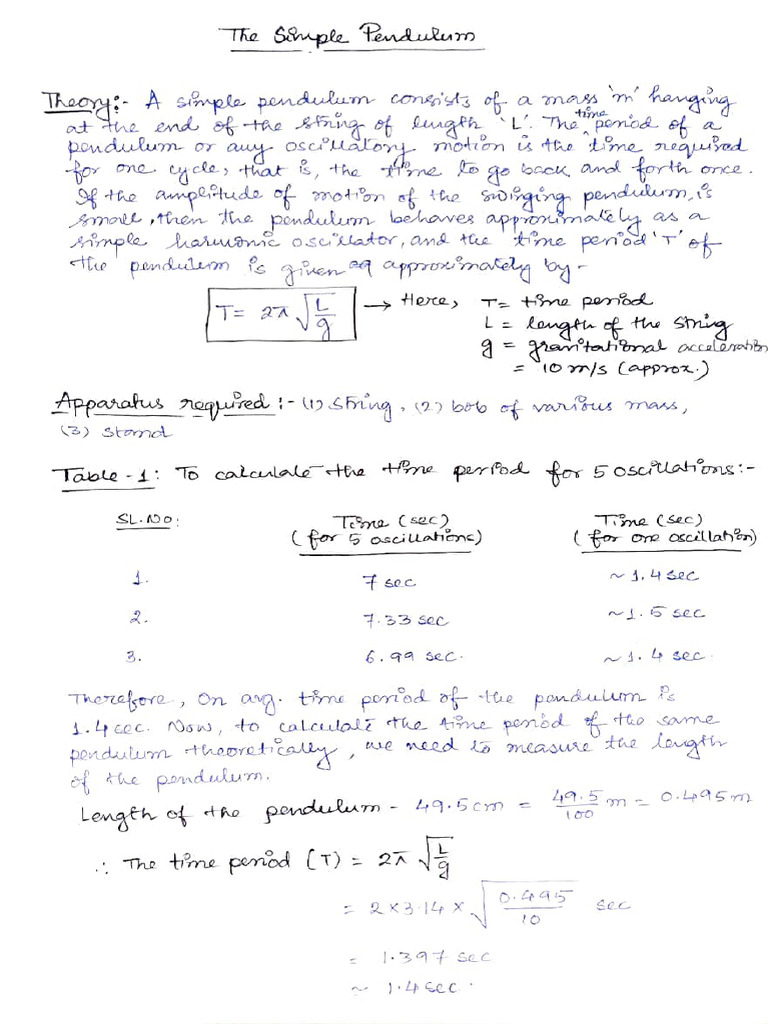 The Simple Pendulum
Theory:- A simple pendulum consists of a mass 'm' hanging
at the end of the string of length 'L'. The time period of a
pendulum or any oscillatory motion is the time required
for one cycle, that is, the time to go back and forth once.
If the amplitude of motion of the swinging pendulum, is
small, then the pendulum behaves approximately as a
simple harmonic oscillator, and the time period 'T' of
the pendulum is given approximately by -
T = 2π √(L/g) → Here, T = time period
L = length of the string
g = gravitational acceleration
= 10 m/s (approx.)
Apparatus required :- (1) String, (2) bob of various mass,
(3) stand
Table - 1 : To calculate the time period for 5 oscillations:-
SL. NO: Time (sec) (for 5 oscillations) Time (sec) (for one oscillation)
1. 7 sec ~ 1.4 sec
2. 7.33 sec ~ 1.5 sec
3. 6.99 sec. ~ 1.4 sec.
Therefore, On avg. time period of the pendulum is
1.4 sec. Now, to calculate the time period of the same
pendulum theoretically, we need to measure the length
of the pendulum.
Length of the pendulum - 49.5 cm = 49.5/100 m = 0.495 m
∴ The time period (T) = 2π √(L/g)
= 2 × 3.14 × √(0.495/10) sec
= 1.397 sec
~ 1.4 sec.